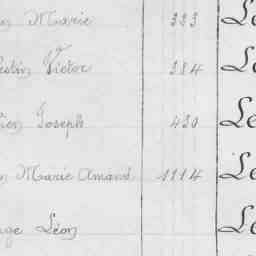 Marie 323 Le
Victor 384 Le
Joseph 430 Le
Marie Amand 1114 Le
Léon Le